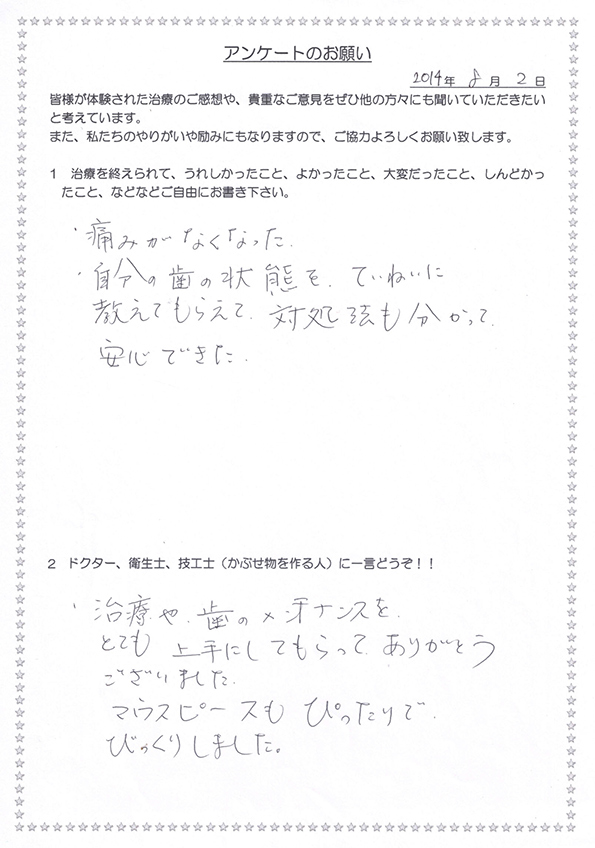 アンケートのお願い
2014年 8月 2日
皆様が体験された治療のご感想や、貴重なご意見をぜひ他の方々にも聞いていただきたい
と考えています。
また、私たちのやりがいや励みにもなりますので、ご協力よろしくお願い致します。
1 治療を終えられて、うれしかったこと、よかったこと、大変だったこと、しんどかっ
たこと、などなどご自由にお書き下さい。
・痛みがなくなった.
・自分の歯の状態を、ていねいに
教えてもらえて、対処法も分かって、
安心できた.
2 ドクター、衛生士、技工士（かぶせ物を作る人）に一言どうぞ！！
・治療や、歯のメンテナンスを、
とても 上手にしてもらって、ありがとう
ございました.
マウスピースも ぴったりで、
びっくりしました。